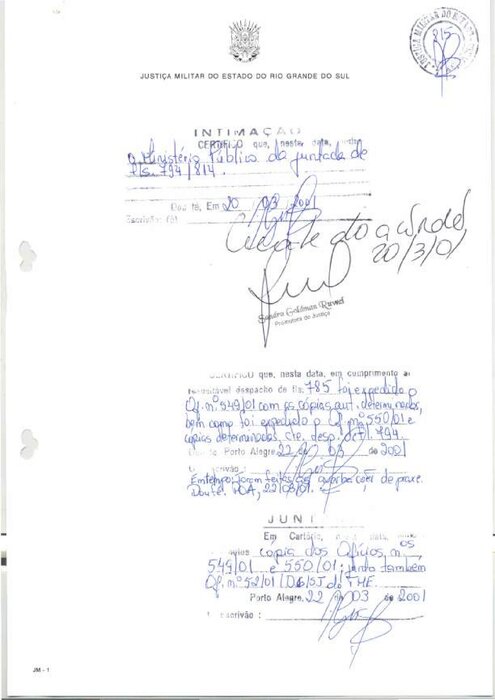 JUSTIÇA MILITAR DO ESTADO DO RIO GRANDE DO SUL
JUSTIÇA MILITAR DO
815
INTIMAÇÃO
CERTIFICO que, nesta data,
o Ministério Público da juntada de
fls. 794/814.
Dou fé, Em 20 03 2001
Escrivão
Ciente do acórdão
20/3/01
Sandra Goldman Ruwel
Promotora de Justiça
que, nesta data, em cumprimento a
respeitável despacho de fls. 785 foi expedido o
Of. nº 549/01 com as cópias aut. determinadas,
bem como foi expedido o Of. nº 550/01 e
cópias determinadas, cfe. desp. de fl. 794.
Porto Alegre, 22 03 de 2001
Escrivão :
Em tempo: foram feitas as de praxe.
Dou fé. POA, 22/03/01.
JUNT
Em Cartório, data,
os
cópia dos Ofícios n
549/01 e 550/01; junto também
Of. nº 52/01 do TME.
Porto Alegre, 22 03 2001
Escrivão :
JM - 1